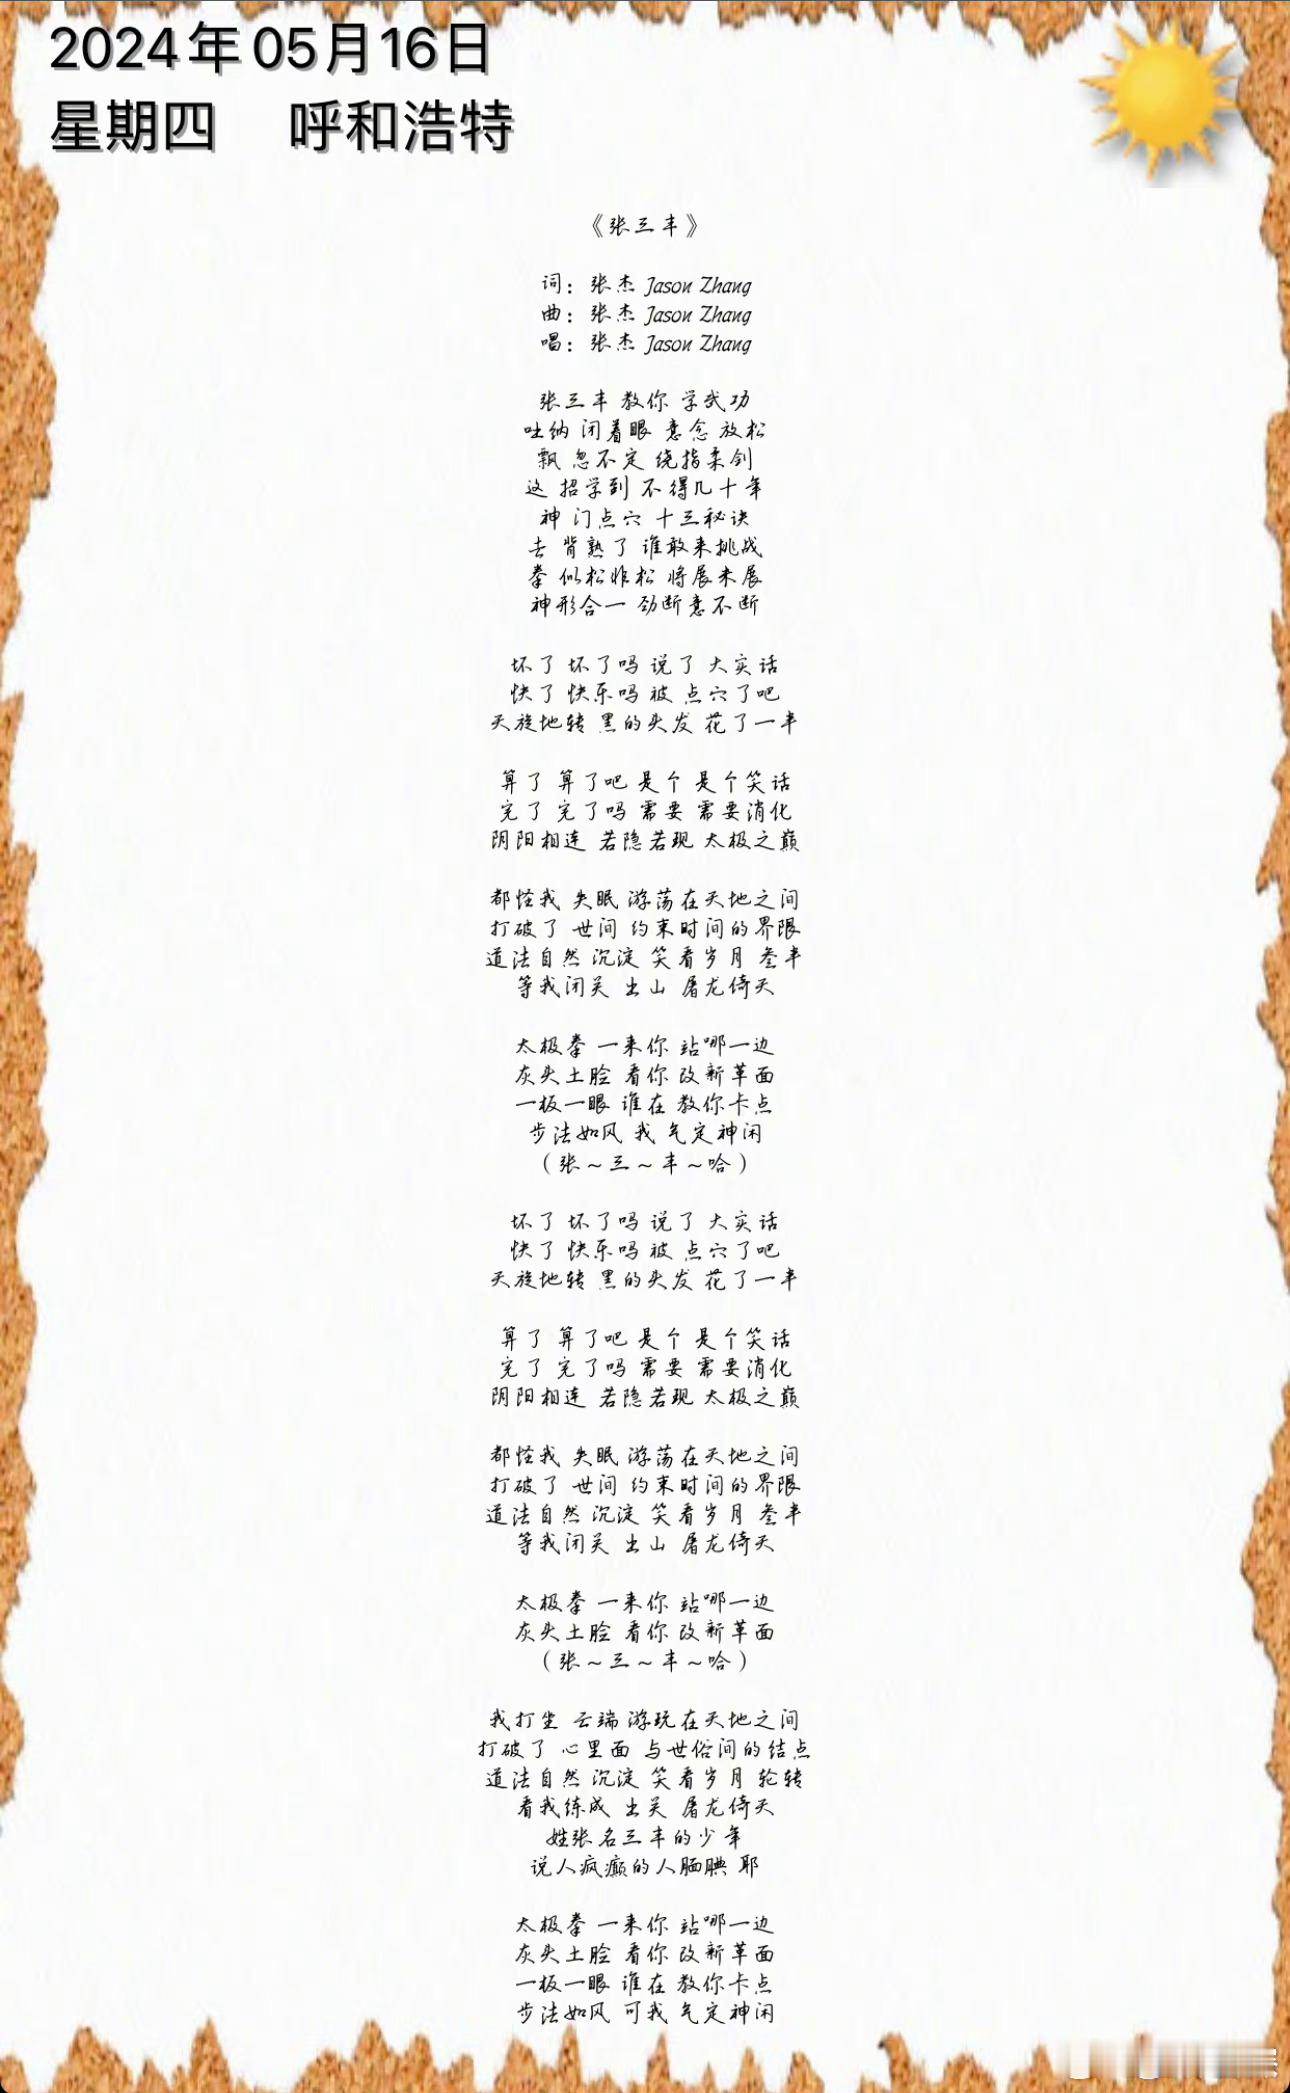 2024年05月16日
星期四 呼和浩特
《张三丰》
词：张杰 Jason Zhang
曲：张杰 Jason Zhang
唱：张杰 Jason Zhang
张三丰 教你 学武功
吐纳 闭着眼 意念 放松
飘 忽不定 绕指柔剑
这 招学到 不得几十年
神 门点穴 十三秘诀
去 背熟了 谁敢来挑战
拳 似松非松 将展未展
神形合一 劲断意不断
坏了 坏了吗 说了 大实话
快了 快乐吗 被 点穴了吧
天旋地转 黑的头发 花了一半
算了 算了吧 是个 是个笑话
完了 完了吗 需要 需要消化
阴阳相连 若隐若现 太极之巅
都怪我 失眠 游荡在天地之间
打破了 世间 约束时间的界限
道法自然 沉淀 笑看岁月 叁丰
等我闭关 出山 屠龙倚天
太极拳 一来你 站哪一边
灰头土脸 看你 改新革面
一板一眼 谁在 教你卡点
步法如风 我 气定神闲
（张～三～丰～哈）
坏了 坏了吗 说了 大实话
快了 快乐吗 被 点穴了吧
天旋地转 黑的头发 花了一半
算了 算了吧 是个 是个笑话
完了 完了吗 需要 需要消化
阴阳相连 若隐若现 太极之巅
都怪我 失眠 游荡在天地之间
打破了 世间 约束时间的界限
道法自然 沉淀 笑看岁月 叁丰
等我闭关 出山 屠龙倚天
太极拳 一来你 站哪一边
灰头土脸 看你 改新革面
（张～三～丰～哈）
我打坐 云端 游玩在天地之间
打破了 心里面 与世俗间的结点
道法自然 沉淀 笑看岁月 轮转
看我练成 出关 屠龙倚天
姓张名三丰的少年
说人疯癫的人腼腆 耶
太极拳 一来你 站哪一边
灰头土脸 看你 改新革面
一板一眼 谁在 教你卡点
步法如风 可我 气定神闲